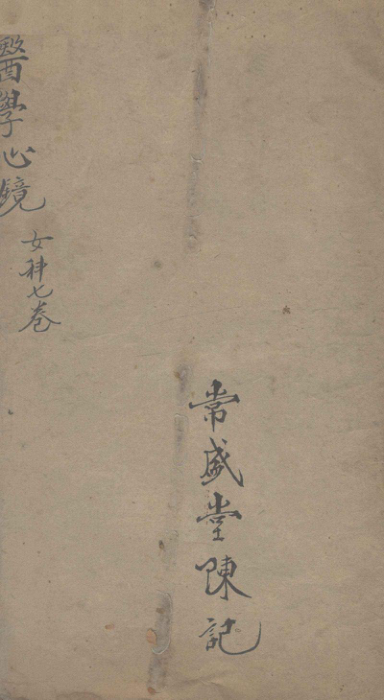 醫學心鏡
女科七卷
常盛堂陳記